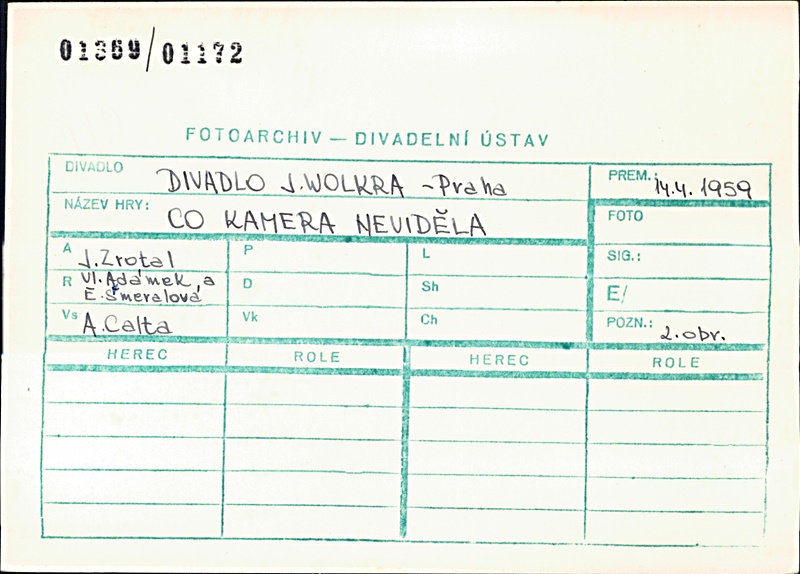 01369/01172
FOTOARCHIV — DIVADELNÍ ÚSTAV
DIVADLO DIVADLO J.WOLKRA - Praha
PREM.: 14.4. 1959
NÁZEV HRY: CO KAMERA NEVIDĚLA
FOTO
A J.Zrotal
P
L
SIG.:
R Vl. Adámek, a
E. Šmeralová
D
Sh
E/
Vs A. Calta
Vk
Ch
POZN.: 2. obr.
HEREC ROLE HEREC ROLE